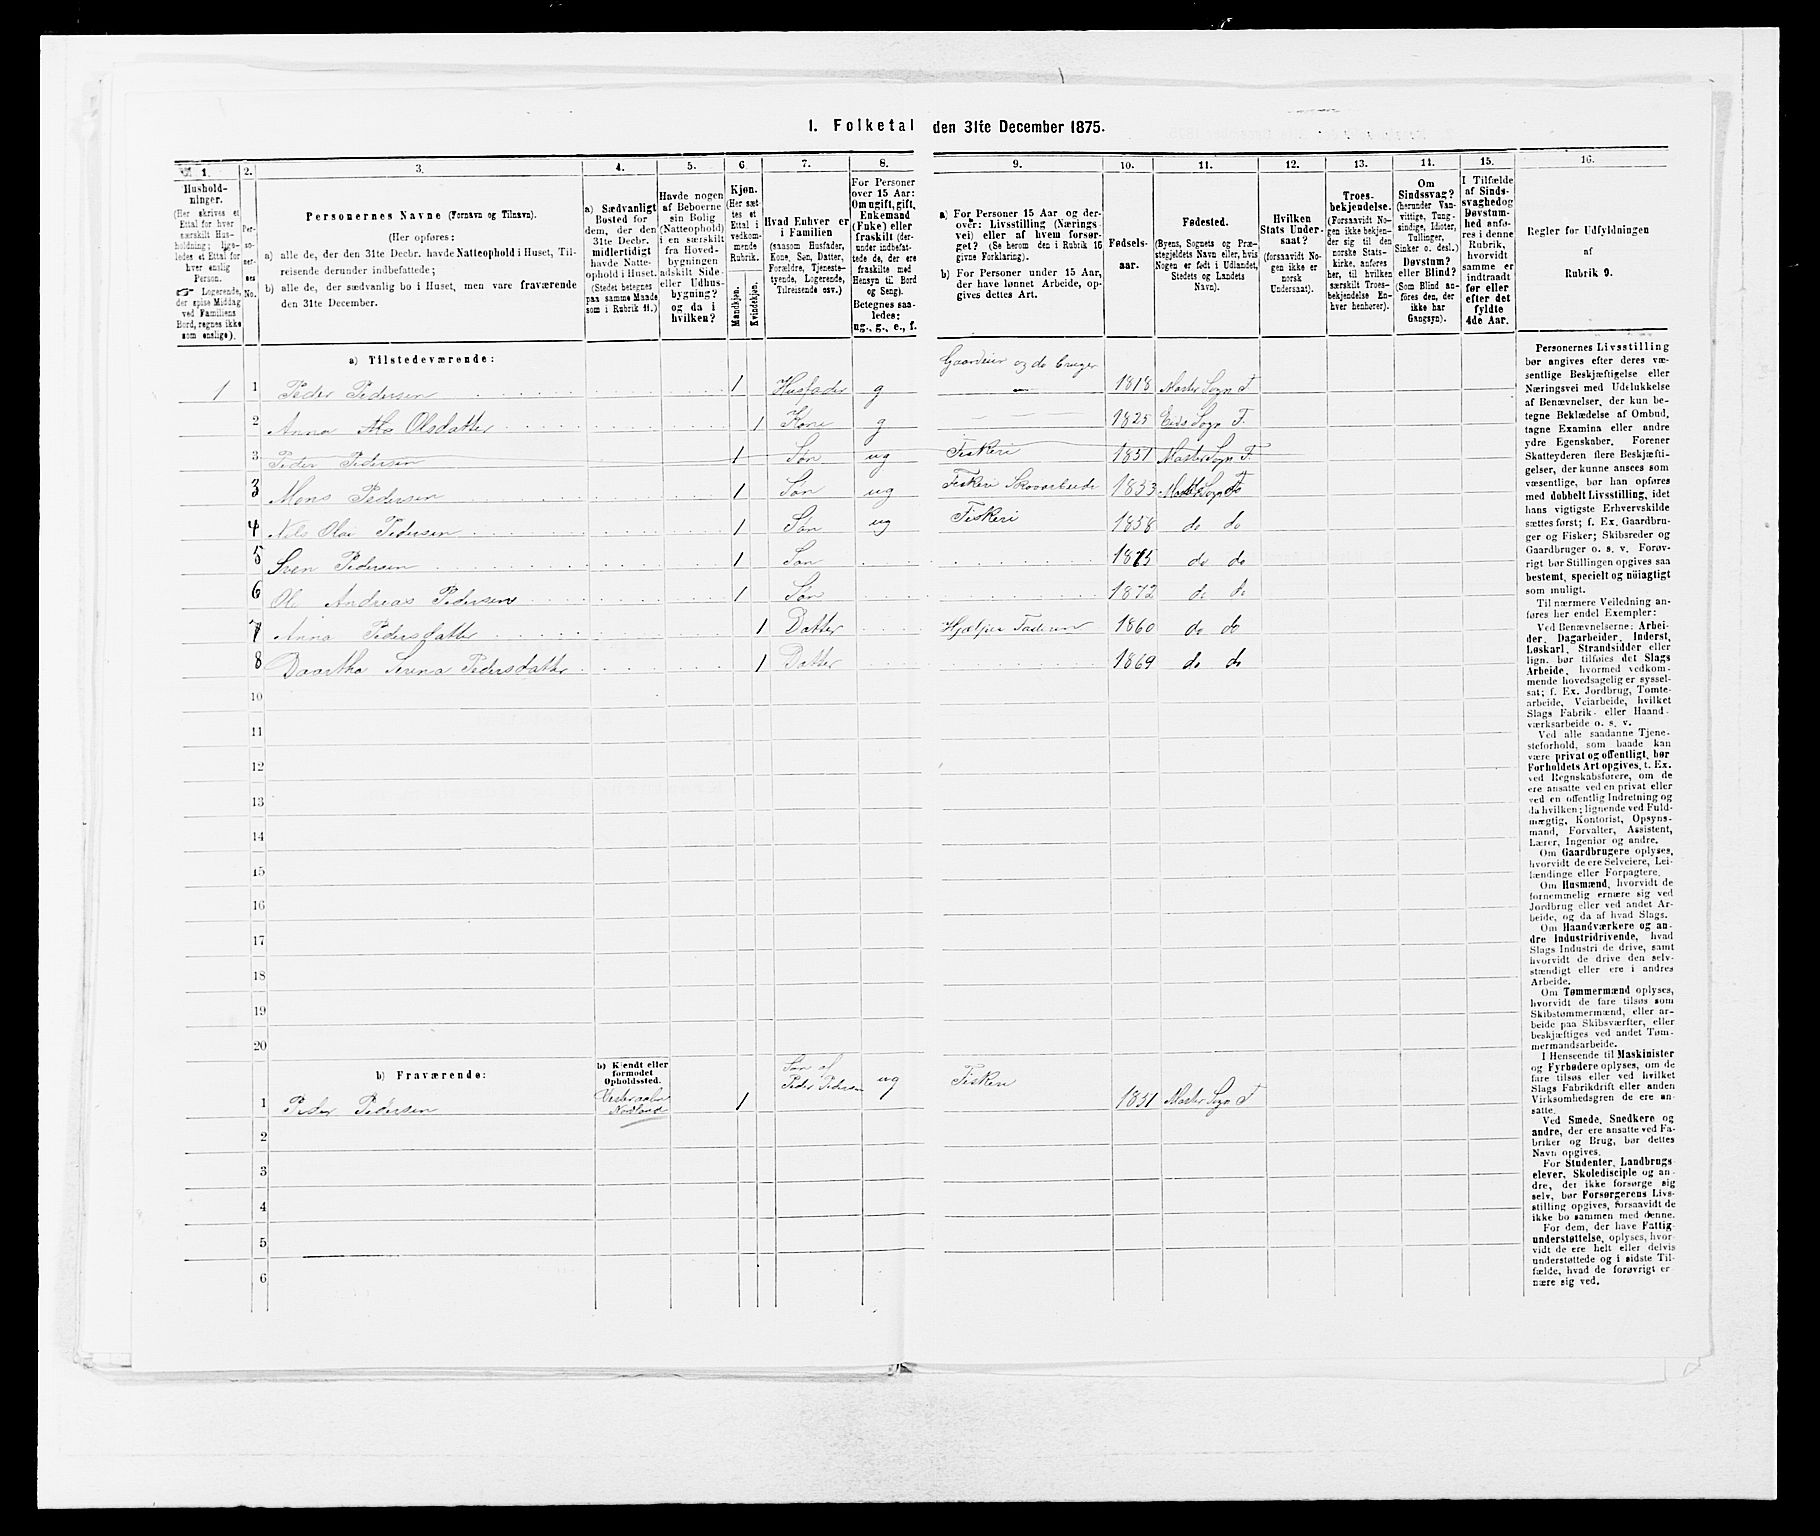 1. Folketal den 31te December 1875.
1. 2. 3. 4. 5. 6. 7. 8. 9. 10. 11. 12. 13. 14. 15. 16.
Hushold-
ninger.
(Her skrives et
Ettal for hver
særskilt Hus-
holdning; lige-
ledes et Ettal for
hver enslig
Person.
☞ Logerende,
der spise Middag
ved Familiens
Bord, regnes ikke
som enslige).
Per-
so-
ner-
nes
No.
Personernes Navne (Fornavn og Tilnavn).
(Her opføres:
a) alle de, der den 31te Decbr. havde Natteophold i Huset, Til-
reisende derunder indbefattede;
b) alle de, der sædvanlig bo i Huset, men vare fraværende
den 31te December.
a) Sædvanligt
Bosted for
dem, der den
31te Decbr.
midlertidigt
havde Natte-
ophold i Huset.
(Stedet betegnes
paa samme Maade
som i Rubrik 11.)
Havde nogen
af Beboerne
sin Bolig
(Natteophold)
i en særskilt
fra Hoved-
bygningen
adskilt Side-
eller Udhus-
bygning?
og da i
hvilken?
Kjøn.
(Her sæt-
tes et
Ettal i
vedkom-
mende
Rubrik.
Mandkjøn.
Kvindekjøn.
Hvad Enhver er
i Familien
(saasom Husfader,
Kone, Søn, Datter,
Forældre, Tjeneste-
tyende, Logerende,
Tilreisende osv.)
For Personer
over 15 Aar:
Om ugift, gift,
Enkemand
(Enke) eller
fraskilt (der-
under indbefat-
tede de, der ere
fraskilte med
Hensyn til Bord
og Seng).
Betegnes saa-
ledes:
ug., g., e., f.
a) For Personer 15 Aar og der-
over: Livsstilling (Nærings-
vei) eller af hvem forsør-
get? (Se herom den i Rubrik 16
givne Forklaring).
b) For Personer under 15 Aar,
der have lønnet Arbeide, op-
gives dettes Art.
Fødsels-
aar.
Fødested.
(Byens, Sognets og Præ-
stegjeldets Navn eller, hvis
Nogen er født i Udlandet,
Stedets og Landets
Navn).
Hvilken
Stats Under-
saat?
(forsaavidt No-
gen ikke er
norsk
Undersaat).
Troes-
bekjendelse.
(Forsaavidt No-
gen ikke bekjen-
der sig til den
norske Stats-
kirke, anføres
her, til hvilken
særskilt Troes-
bekjendelse En-
hver henhører).
Om
Sindssvag?
(herunder Van-
vittige, Tung-
sindige, Idioter,
Tullinger,
Sinker o. desl.)
Døvstum?
eller Blind?
(Som Blind an-
føres den, der
ikke har
Gangsyn).
I Tilfælde
af Sinds-
svaghed og
Døvstum-
hed anfø-
res i denne
Rubrik,
hvorvidt
samme er
indtraadt
før eller
efter det
fyldte
4de Aar.
Regler for Udfyldningen
af
Rubrik 9.
a) Tilstedeværende:
Gaardeier og do bruger
1 1 Peder Pedersen 1 Husfader g — 1818 Master Sogn F
2 Anna Olsdatter 1 Kone g — — 1825 Eids Sogn F.
3 Peder Pedersen 1 Søn ug Fiskeri 1851 Master Sogn F
3 Mons Pedersen 1 Søn ug Fiskeri Skovarbeide 1853 Sogn
4 Nils Olai Pedersen 1 Søn ug Fiskeri 1858 do do
5 Sven Pedersen 1 Søn do do
6 Ole Andreas Pedersen 1 Søn 1872 do do
7 Anna Pedersdatter 1 Datter Hjælper Faderen 1860 do do
8 Serina Pedersdatter 1 Datter 1869 do do
10
11
12
13
14
15
16
17
18
19
20
b) Fraværende:
b) Kjendt eller
formodet
Opholdssted.
1 Peder Pedersen Vesteraalen Nordland 1 Søn af Peder Pedersen ug Fiskeri 1851 Master Sogn F
2
3
4
5
6
Personernes Livsstilling
bør angives efter deres væ-
sentlige Beskjæftigelse eller
Næringsvei med Udelukkelse
af Benævnelser, der kun be-
tegne Beklædelse af Ombud,
tagne Examina eller andre
ydre Egenskaber. Forener
Skatteyderen flere Beskjæfti-
gelser, der kunne ansees som
væsentlige, bør han opføres
med dobbelt Livsstilling, idet
hans vigtigste Erhvervskilde
sættes først; f. Ex. Gaardbru-
ger og Fisker; Skibsreder og
Gaardbruger o. s. v. Forøv-
rigt bør Stillingen opgives saa
bestemt, specielt og nøiagtigt
som muligt.
Til nærmere Veiledning an-
føres her endel Exempler:
Ved Benævnelserne: Arbei-
der, Dagarbeider, Inderst,
Løskarl, Strandsidder eller
lign. bør tilføies det Slags
Arbeide, hvormed vedkom-
mende hovedsagelig er syssel-
sat; f. Ex. Jordbrug, Tomte-
arbeide, Veiarbeide, hvilket
Slags Fabrik- eller Haand-
værksarbeide o. s. v.
Ved alle saadanne Tjene-
steforhold, som baade kan
være privat og offentligt, bør
Forholdets Art opgives, t. Ex.
ved Regnskabsførere, om de
ere ansatte ved en privat eller
ved en offentlig Indretning og
da hvilken; lignende ved Fuld-
mægtig, Kontorist, Opsyns-
mand, Forvalter, Assistent,
Lærer, Ingeniør og andre.
Om Gaardbrugere oplyses,
hvorvidt de ere Selveiere, Lei-
lændinge eller Forpagtere.
Om Husmænd, hvorvidt de
fornemmelig ernære sig ved
Jordbrug eller ved andet Ar-
beide, og da af hvad Slags.
Om Haandværkere og an-
dre Industridrivende, hvad
Slags Industri de drive, samt
hvorvidt de drive den selv-
stændigt eller ere i andres
Arbeide.
Om Tømmermænd oplyses,
hvorvidt de fare tilsøs som
Skibstømmermænd, eller ar-
beide paa Skibsværfter, eller
beskjæftiges ved andet Tøm-
mermandsarbeide.
I Henseende til Maskinister
og Fyrbødere oplyses, om de
fare tilsøs eller ved hvilket
Slags Fabrikdrift eller anden
Virksomhedsgren de ere an-
satte.
Ved Smede, Snedkere og
andre, der ere ansatte ved Fa-
briker og Brug, bør dettes
Navn opgives.
For Studenter, Landbrugs-
elever, Skoledisciple og an-
dre, der ikke forsørge sig
selv, bør Forsørgerens Livs-
stilling opgives, forsaavidt de
ikke bo sammen med denne.
For dem, der have Fattig-
understøttelse, oplyses, hvor-
vidt de ere helt eller delvis
understøttede og i sidste Til-
fælde, hvad de forøvrigt er-
nære sig ved.